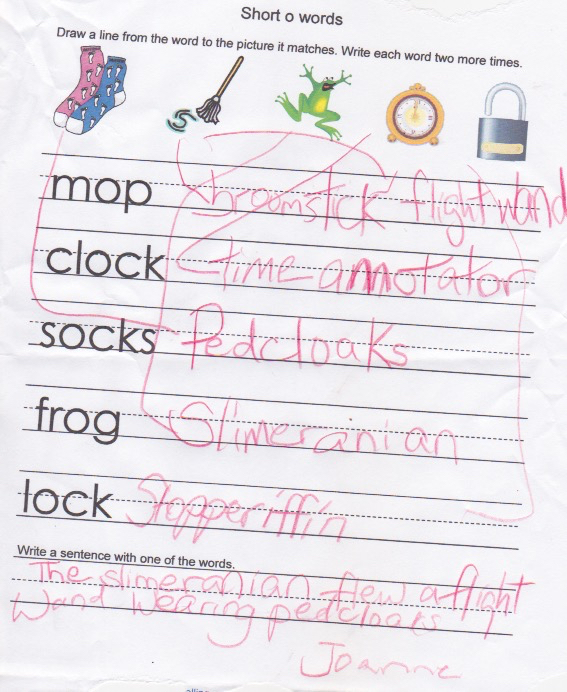 Short o words
Draw a line from the word to the picture it matches. Write each word two more times.
mop broomstick flight wand
clock time annotator
socks Pedcloaks
frog Slimeranian
lock Stopperiffin
Write a sentence with one of the words.
The slimeranian flew a flight
wand wearing pedcloaks
Joanne